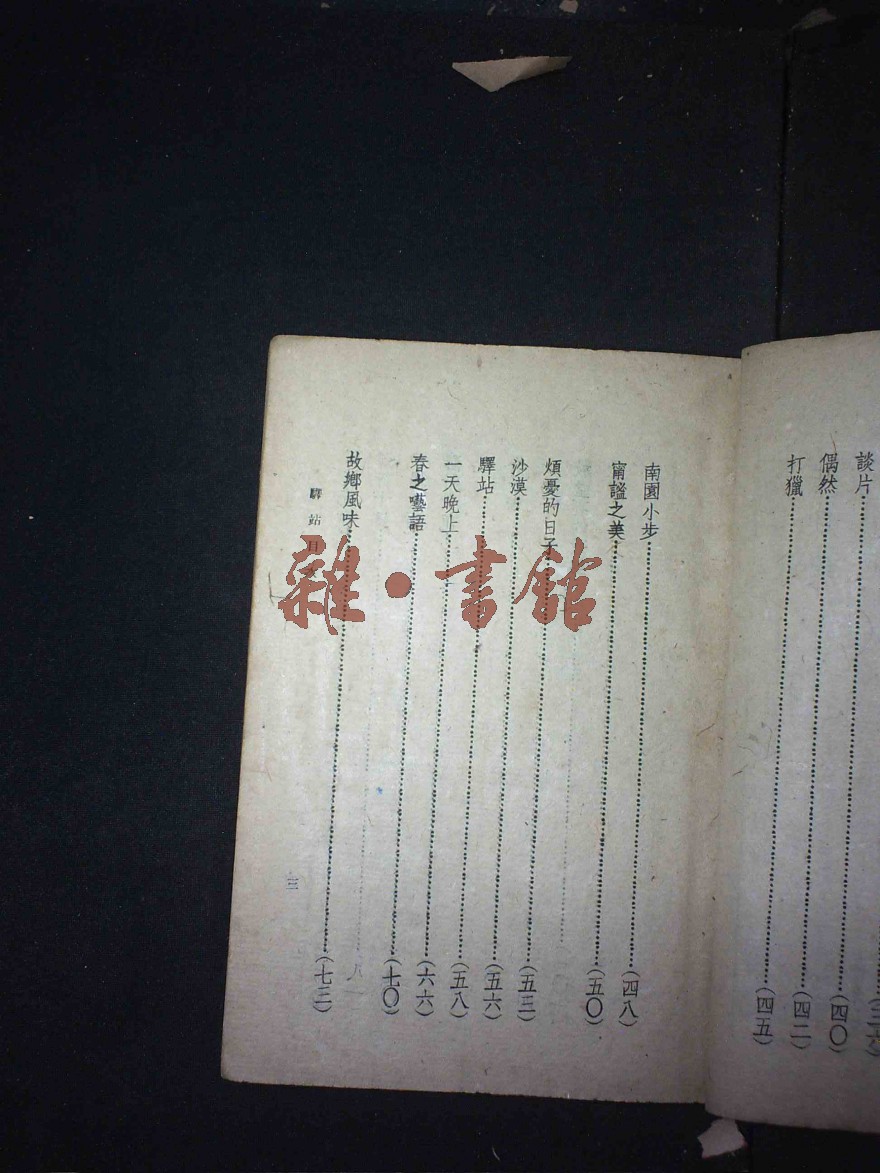 (三六)
談片……(四〇)
偶然……(四二)
打獵……(四五)
南園小步……(四八)
甯謐之美……(五〇)
煩憂的日子……(五三)
沙漠……(五六)
驛站……(五八)
一天晚上……(六六)
春之囈語……(七〇)
故鄉風味……(七三)
驛站目
三
雜·書館